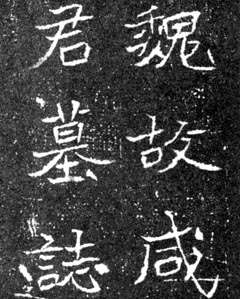 魏故咸
君墓誌